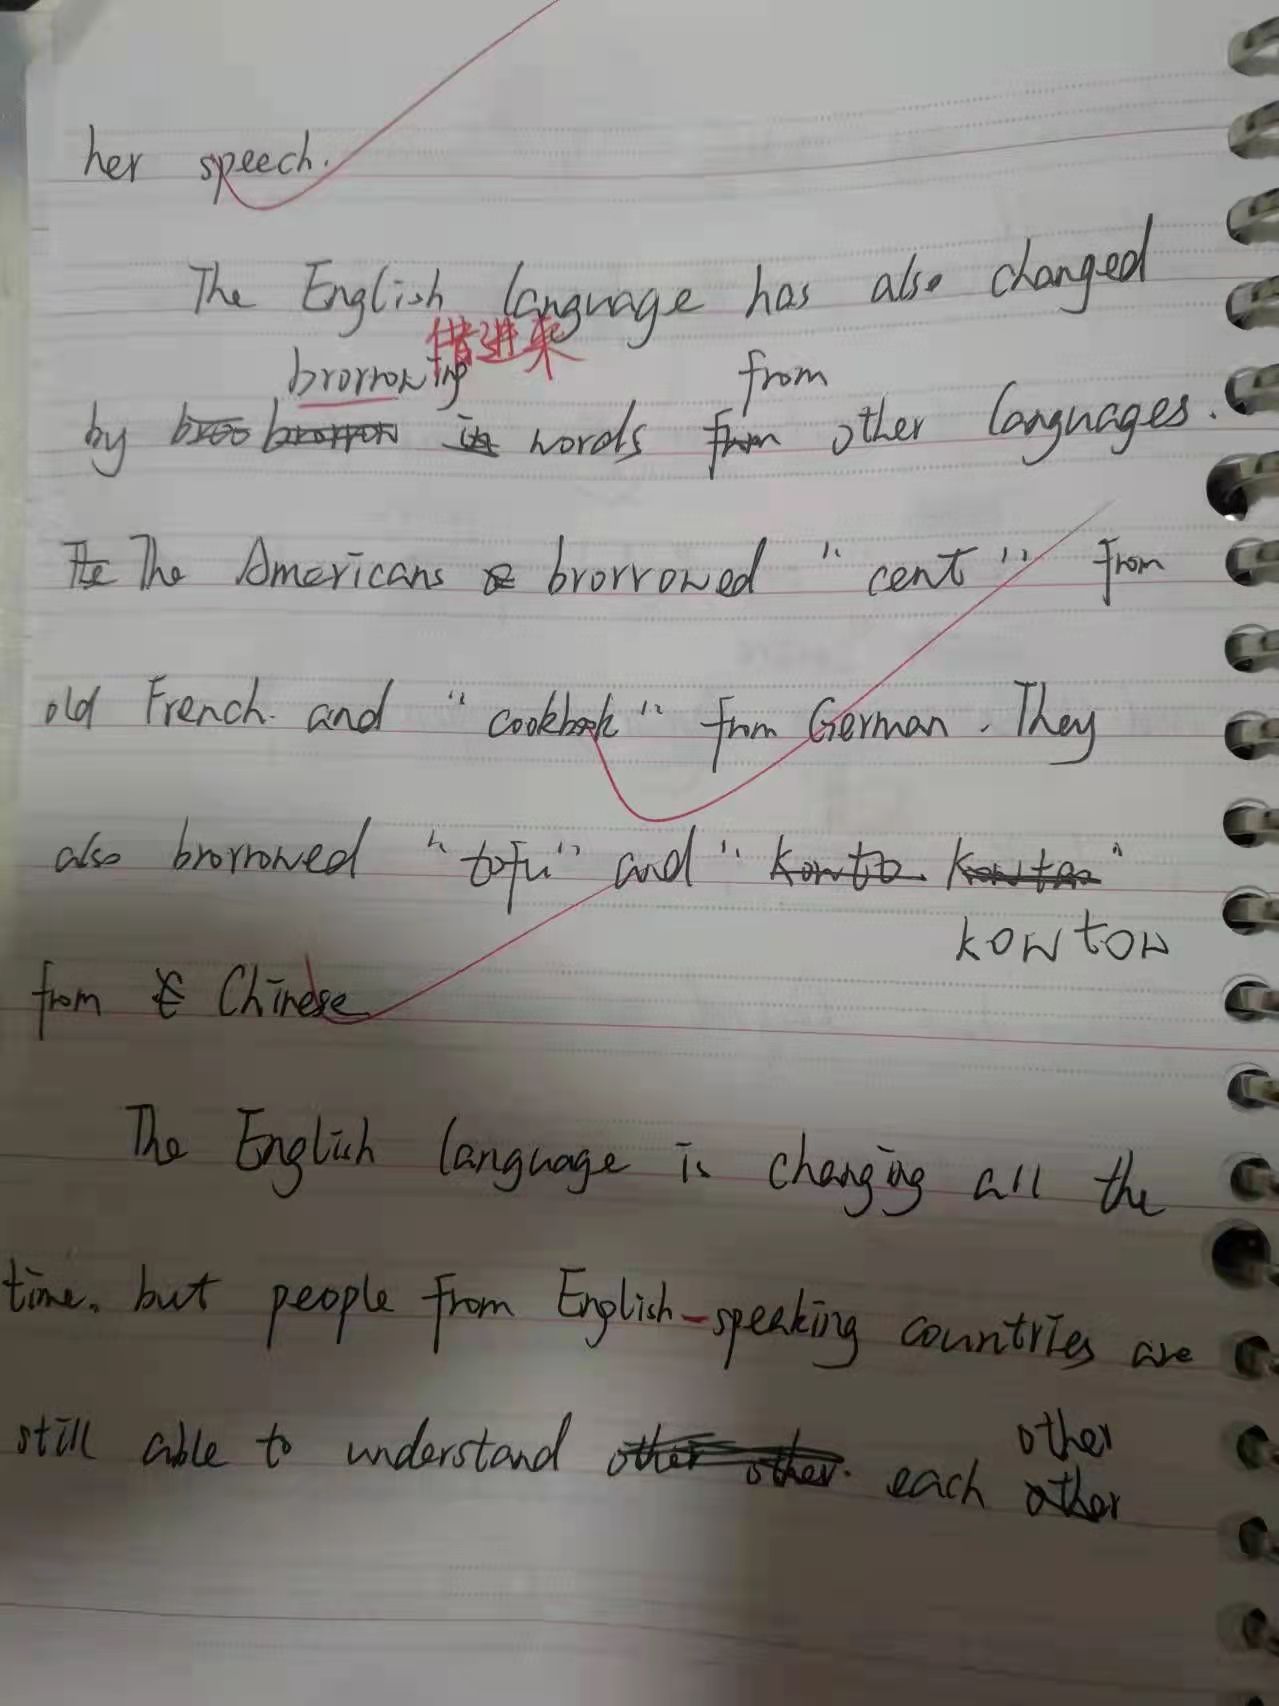 her speech.
The English language has also changed
借进来
brorrowing from
by words other languages.
The Americans brorrowed "cent" from
old French. and "cookbook" from German. They
also brorrowed "tofu" and "
kowtow
from Chinese
The English language is changing all the
time. but people from English-speaking countries are
other
still able to understand each other